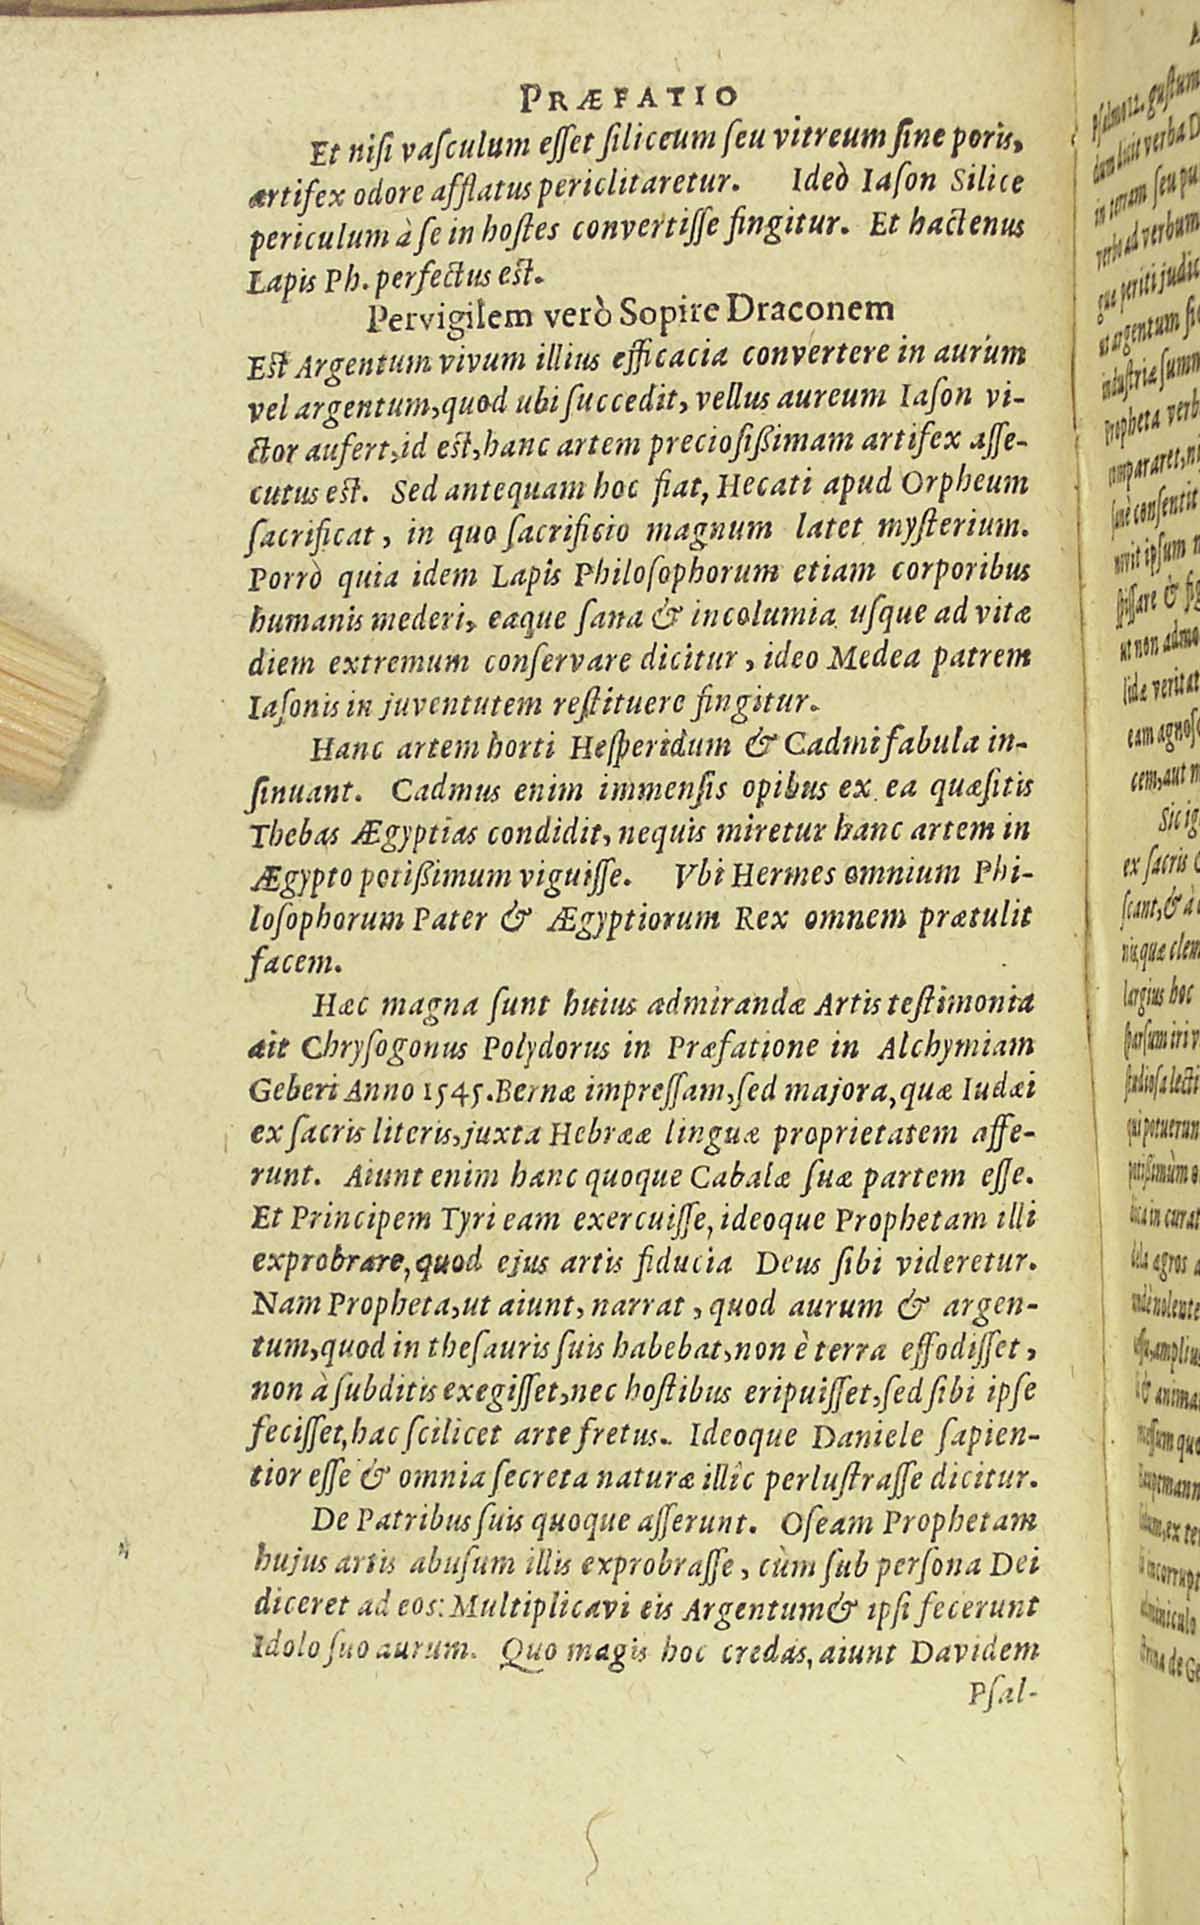 PRÆFATIO
Et nisi vasculum esset siliceum seu vitreum sine poris,
artifex odore afflatus periclitaretur. Ideò Iason Silice
periculum à se in hostes convertisse fingitur. Et hactenus
Lapis Ph. perfectus est.
Pervigilem verò Sopire Draconem
Est Argentum vivum illius efficacia convertere in aurum
vel argentum, quod ubi succedit, vellus aureum Iason vi-
ctor aufert, id est, hanc artem preciosißimam artifex asse-
cutus est. Sed antequam hoc fiat, Hecati apud Orpheum
sacrificat, in quo sacrificio magnum latet mysterium.
Porrò quia idem Lapis Philosophorum etiam corporibus
humanis mederi, eaque sana & incolumia usque ad vitæ
diem extremum conservare dicitur, ideo Medea patrem
Iasonis in juventutem restituere fingitur.
Hanc artem horti Hesperidum & Cadmi fabula in-
sinuant. Cadmus enim immensis opibus ex ea quæsitis
Thebas Ægyptias condidit, nequis miretur hanc artem in
Ægypto potißimum viguisse. Vbi Hermes omnium Phi-
losophorum Pater & Ægyptiorum Rex omnem prætulit
facem.
Hæc magna sunt huius admirandæ Artis testimonia
ait Chrysogonus Polydorus in Præfatione in Alchymiam
Geberi Anno 1545. Bernæ impressam, sed majora, quæ Iudæi
ex sacris literis, juxta Hebrææ linguæ proprietatem affe-
runt. Aiunt enim hanc quoque Cabalæ suæ partem esse.
Et Principem Tyri eam exercuisse, ideoque Prophetam illi
exprobrare, quod ejus artis fiducia Deus sibi videretur.
Nam Propheta, ut aiunt, narrat, quod aurum & argen-
tum, quod in thesauris suis habebat, non è terra effodisset,
non à subditis exegisset, nec hostibus eripuisset, sed sibi ipse
fecisset, hac scilicet arte fretus. Ideoque Daniele sapien-
tior esse & omnia secreta naturæ illîc perlustrasse dicitur.
De Patribus suis quoque asserunt. Oseam Prophetam
hujus artis abusum illis exprobrasse, cùm sub persona Dei
diceret ad eos: Multiplicavi eis Argentum & ipsi fecerunt
Idolo suo aurum. Quo magis hoc credas, aiunt Davidem
Psal-
Psalmo 12. gustum
dum dicit verba D
in terram seu pu
verbo ad verbum
que periti judic
ut argentum sic
industriæ summ
Propheta verb